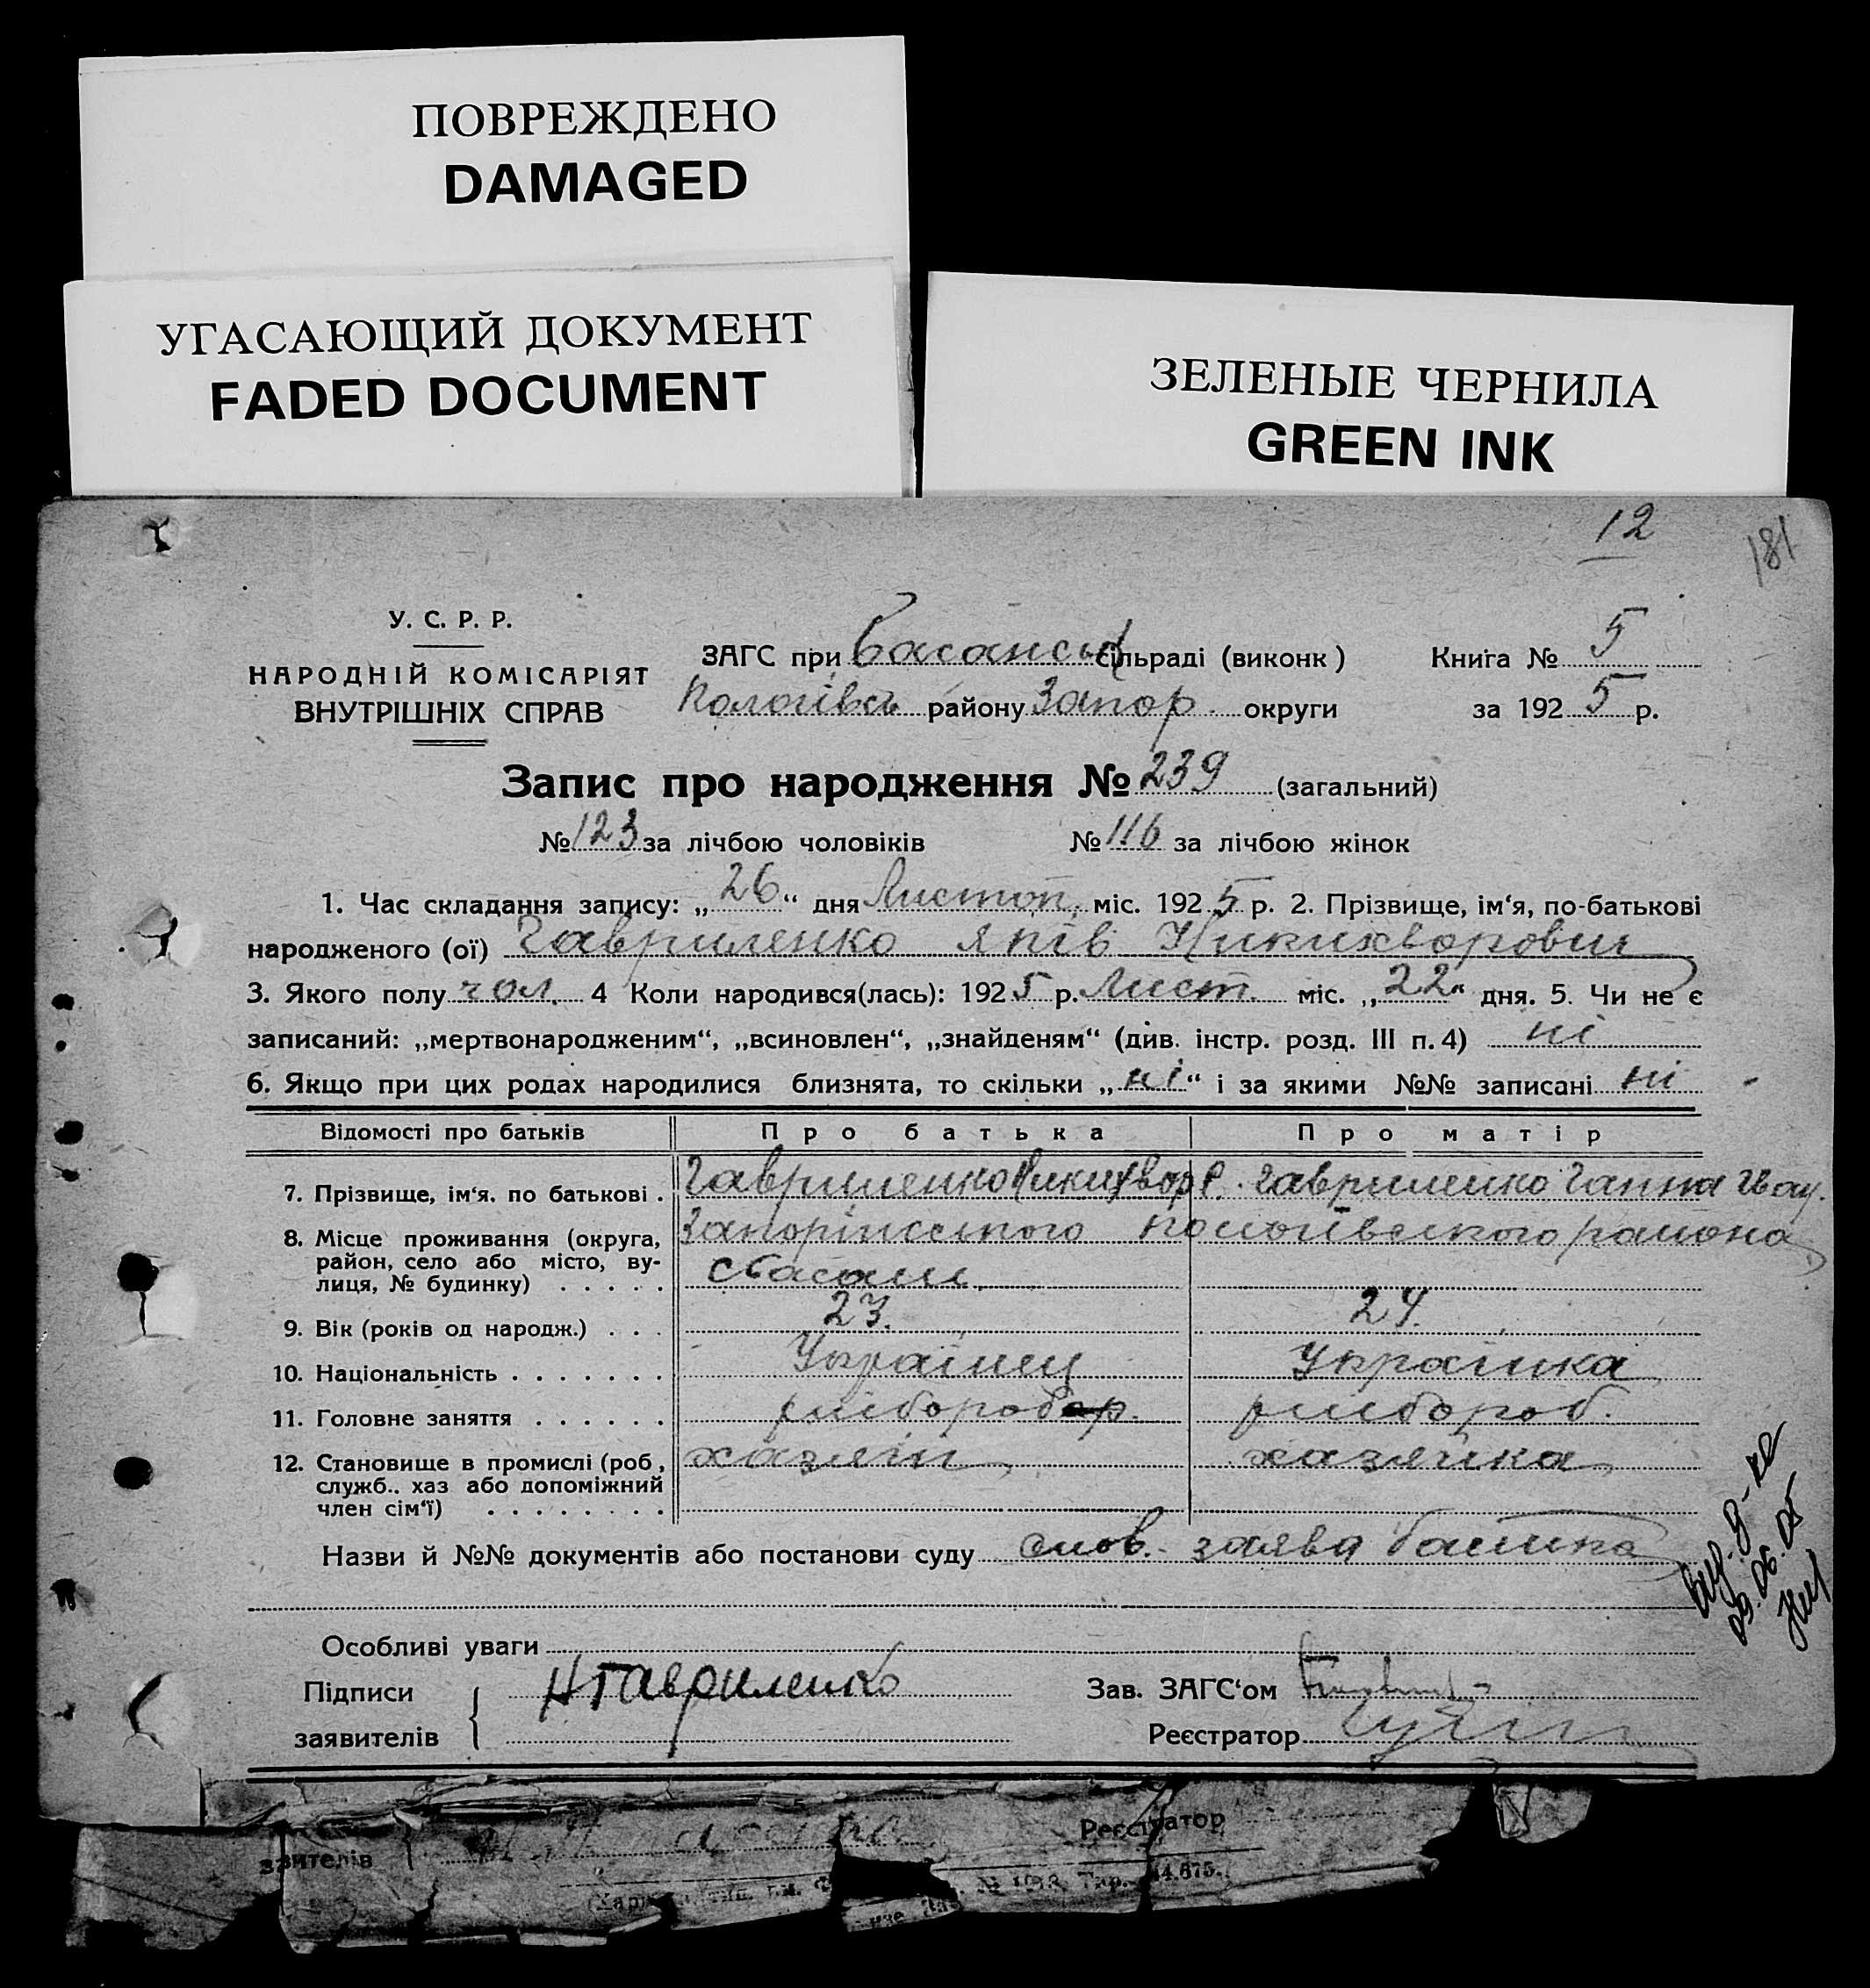 ПОВРЕЖДЕНО
DAMAGED
УГАСАЮЩИЙ ДОКУМЕНТ
FADED DOCUMENT
ЗЕЛЕНЫЕ ЧЕРНИЛА
GREEN INK
12
181
У. С. Р. Р.
НАРОДНІЙ КОМІСАРІЯТ
ВНУТРІШНІХ СПРАВ
ЗАГС при Басанськ сільраді (виконк) Книга № 5
Пологівськ району Запор. округи за 1925 р.
Запис про народження № 239 (загальний)
№ 123 за лічбою чоловіків № 116 за лічбою жінок
1. Час складання запису: „26“ дня Листоп. міс. 1925 р. 2. Прізвище, ім'я, по-батькові
народженого (ої) Гавриленко Яків Никихворович
3. Якого полу чол. 4 Коли народився(лась): 1925 р. Лист. міс. „22“ дня. 5. Чи не є
записаний: „мертвонародженим“, „всиновлен“, „знайденям“ (див. інстр. розд. III п. 4) ні
6. Якщо при цих родах народилися близнята, то скільки „ні“ і за якими №№ записані ні
Відомості про батьків Про батька Про матір
7. Прізвище, ім'я, по батькові . Гавриленко Никихвор Гавриленко Ганна
8. Місце проживання (округа, район, село або місто, вулиця, № будинку) . . . . . Запоріжського Пологівського района
с Басань
9. Вік (років од народж.) . . . 23. 24.
10. Національність . . . . . . . Українец Українка
11. Головне заняття . . . . . . хлібороб хлібороб.
12. Становище в промислі (роб, служб.. хаз або допоміжний член сім'ї) . . . . . . . . хазяїн хазяйка
Назви й №№ документів або постанови суду слов. заява батька
Особливі уваги
Підписи
заявителів
Н Гавриленко
Зав. ЗАГС'ом
Реєстратор
Реєстратор